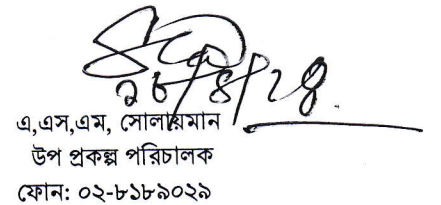 ২৮/৪/২৪
এ,এস,এম, সোলায়মান
উপ প্রকল্প পরিচালক
ফোন: ০২-৮১৮৯০২৯